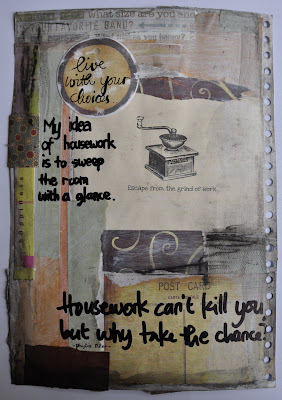 what size are you
YOUR FAVORITE BAND?
live
with your
choices.
My idea
of housework
is to sweep
the room
with a glance.
happiness
Escape from the grind of work.
POST CARD
Housework can't kill you
but why take the chance?